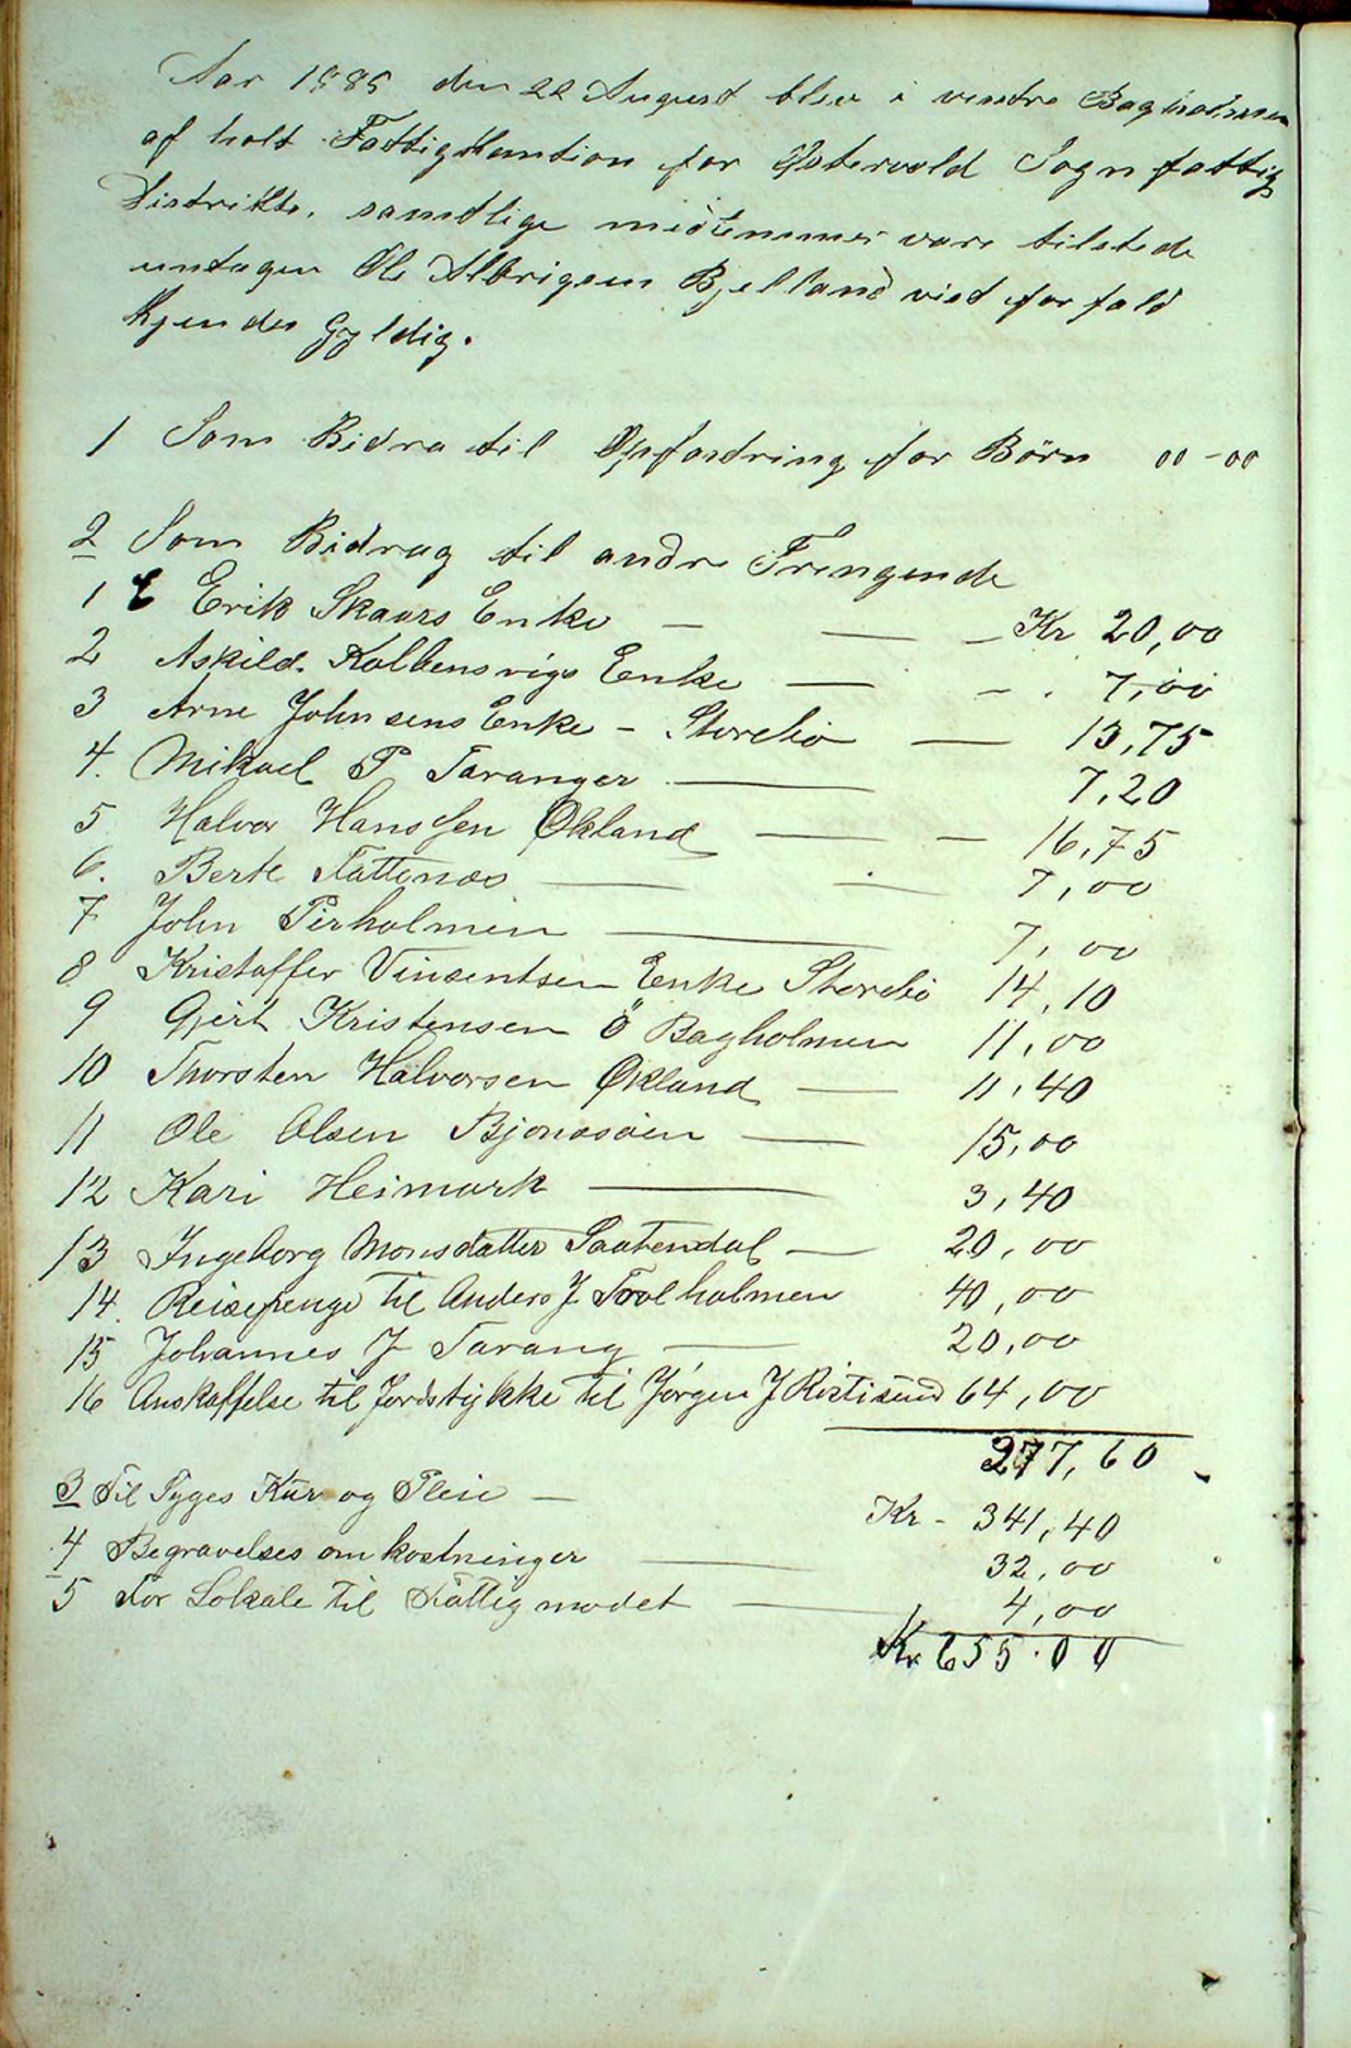 Aar 1885 den 22 August blev i vestre Bagholmen
af holt Fattigkantion for Østervold Sogn fattig
Distrikts. samtlige medlemmer vare tilstede
untagen Ole Albrigsen Bjelland vist for fald
kjendes Gyldig.
1 Som Bidra til Opfostring for Börn 00-00
2 Som Bidrag til andre Trengende
1 E Erik Skaars Enke — — — Kr 20,00
2 Askild. Kolbensvigs Enke — - . 7,00
3 Arne Johnsens Enke - Storebø — 13,75
4. Mikael P Taranger — 7,20
5 Halvor Hanssen Økland — — 16,75
6. Berte Flattenæs — — 7,00
7 John Perholmen — 7,00
8 Kristoffer Vinsentsen Enke Storebø 14,10
9 Gjert Kristensen Ö Bagholmen 11,00
10 Thorsten Halvorsen Økland — 11,40
11 Ole Olsen Bjonesøen — 15,00
12 Kari Heimark — 3,40
13 Ingeborg Monsdatter Saatendal — 20,00
14. Reisepenge til Anders J Trolholmen 40,00
15 Johannes J Tarang — 20,00
16 Anskaffelse til Jordstykke til Jørgen J Rostisund 64,00
277,60
3 Til Syges Kur og Pleie — Kr - 341,40
4 Begravelses omkostninger — 32,00
5 For Lokale til Fattigmødet — 4,00
Kr 655.00